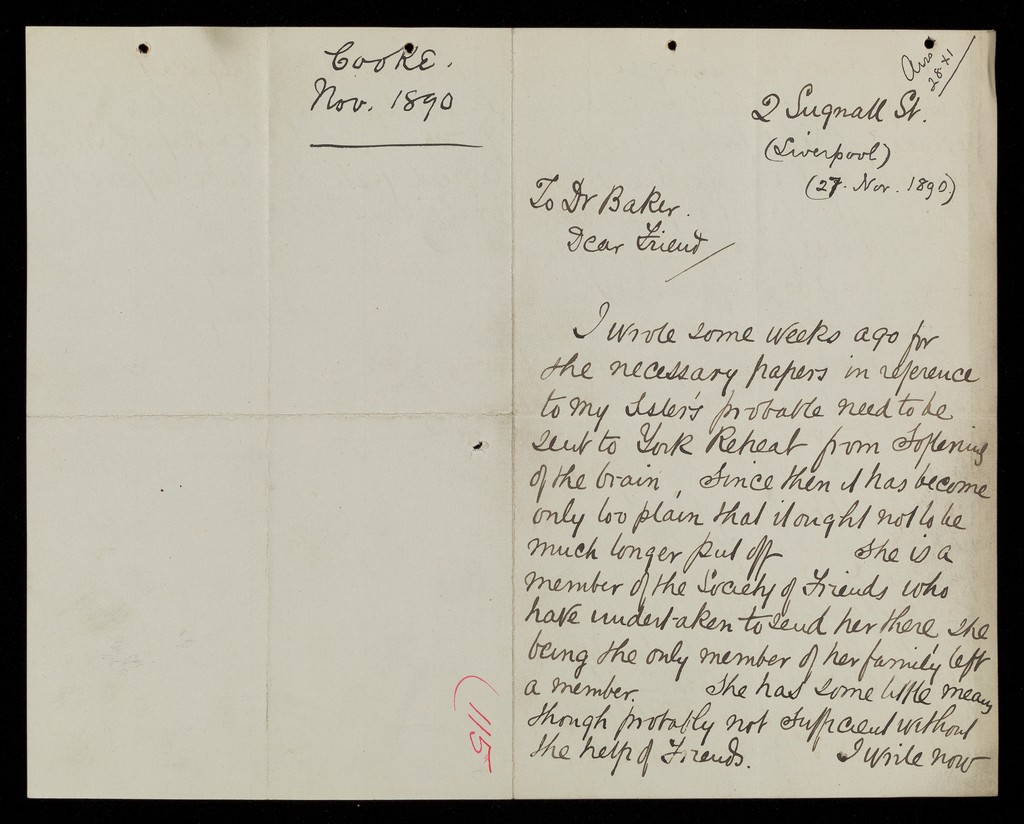 Cooke.
Nov. 1890
Ans
28.XI
2 Sugnall St.
(Liverpool)
(27. Nov. 1890.)
To Dr Baker.
Dear Friend
I wrote some weeks ago for
the necessary papers in reference
to my Sister's probable need to be
sent to York Retreat from Softening
of the brain, Since then it has become
only too plain that it ought not to be
much longer put off She is a
member of the Society of Friends who
have undertaken to send her there, she
being the only member of her family left
a member. She has some little means
though probably not sufficient without
the help of Friends. I write now
(115